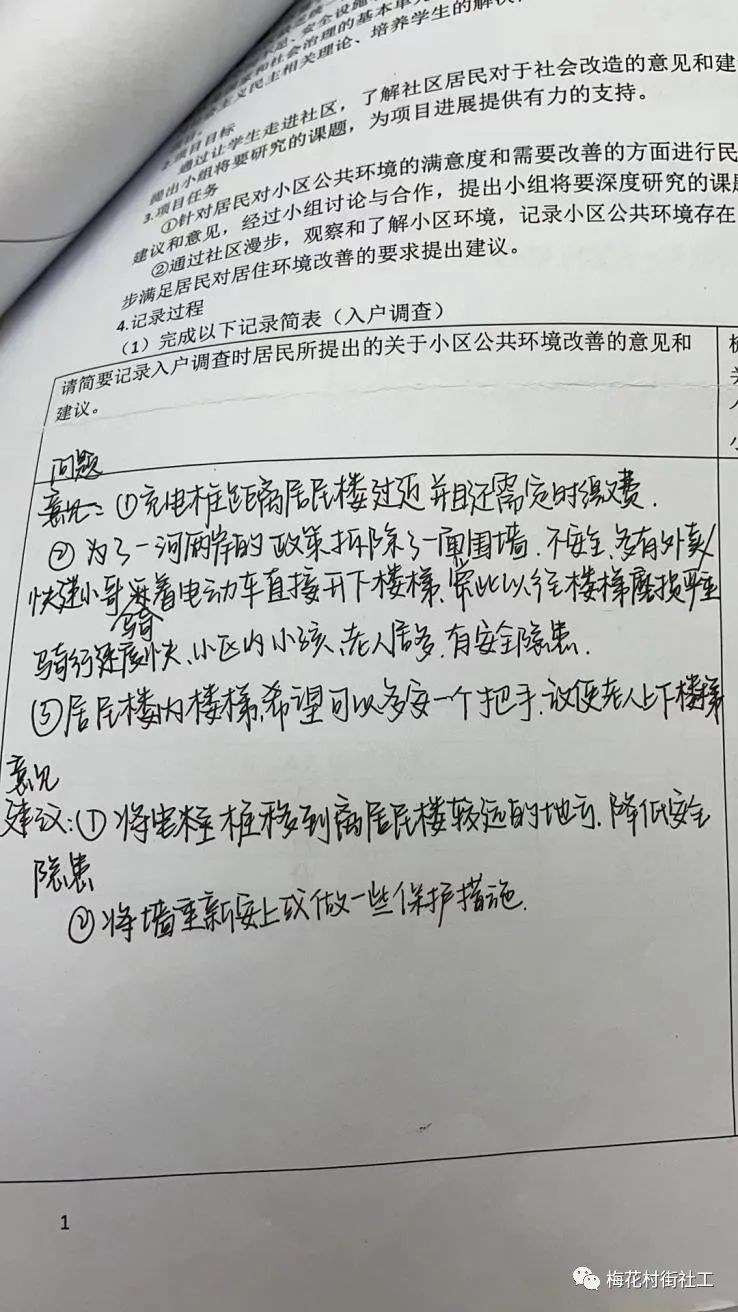 不足、安全设施
和社会治理的基本单元
主义民主相关理论、培养学生的解决
2.项目目标
通过让学生走进社区，了解社区居民对于社会改造的意见和建
提出小组将要研究的课题，为项目进展提供有力的支持。
3.项目任务
①针对居民对小区公共环境的满意度和需要改善的方面进行民
建议和意见，经过小组讨论与合作，提出小组将要深度研究的课题
②通过社区漫步，观察和了解小区环境，记录小区公共环境存在
步满足居民对居住环境改善的要求提出建议。
4.记录过程
（1）完成以下记录简表（入户调查）
请简要记录入户调查时居民所提出的关于小区公共环境改善的意见和
建议。
问题
意见：①充电桩距离居民楼过近并且还需定时缴费.
②为了一河两岸的政策拆除了一面围墙.不安全.多有外卖/
快递小哥骑着电动车直接开下楼梯.常此以往楼梯磨损严重
骑行速度快.小区内小孩、老人居多.有安全隐患.
③居民楼内楼梯希望可以多安一个把手.以便老人上下楼梯
意见
建议:①将电桩移到离居民楼较远的地方.降低安全
隐患
②将墙重新安上或做一些保护措施.
1
梅花村街社工